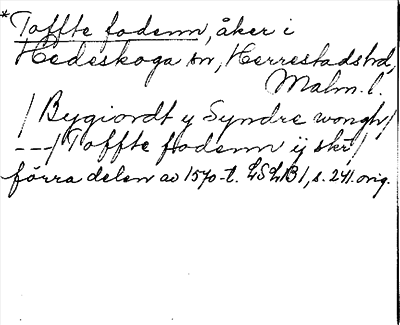 *Toffte fodenn, åker i
Hedeskoga sn, Herrestads hd,
Malm. l.
/ Bygiordt y Syndre wongh /
---/ Toffte fodenn ij skr /
förra delen av 1570-t. LSLB1, s. 241. orig.